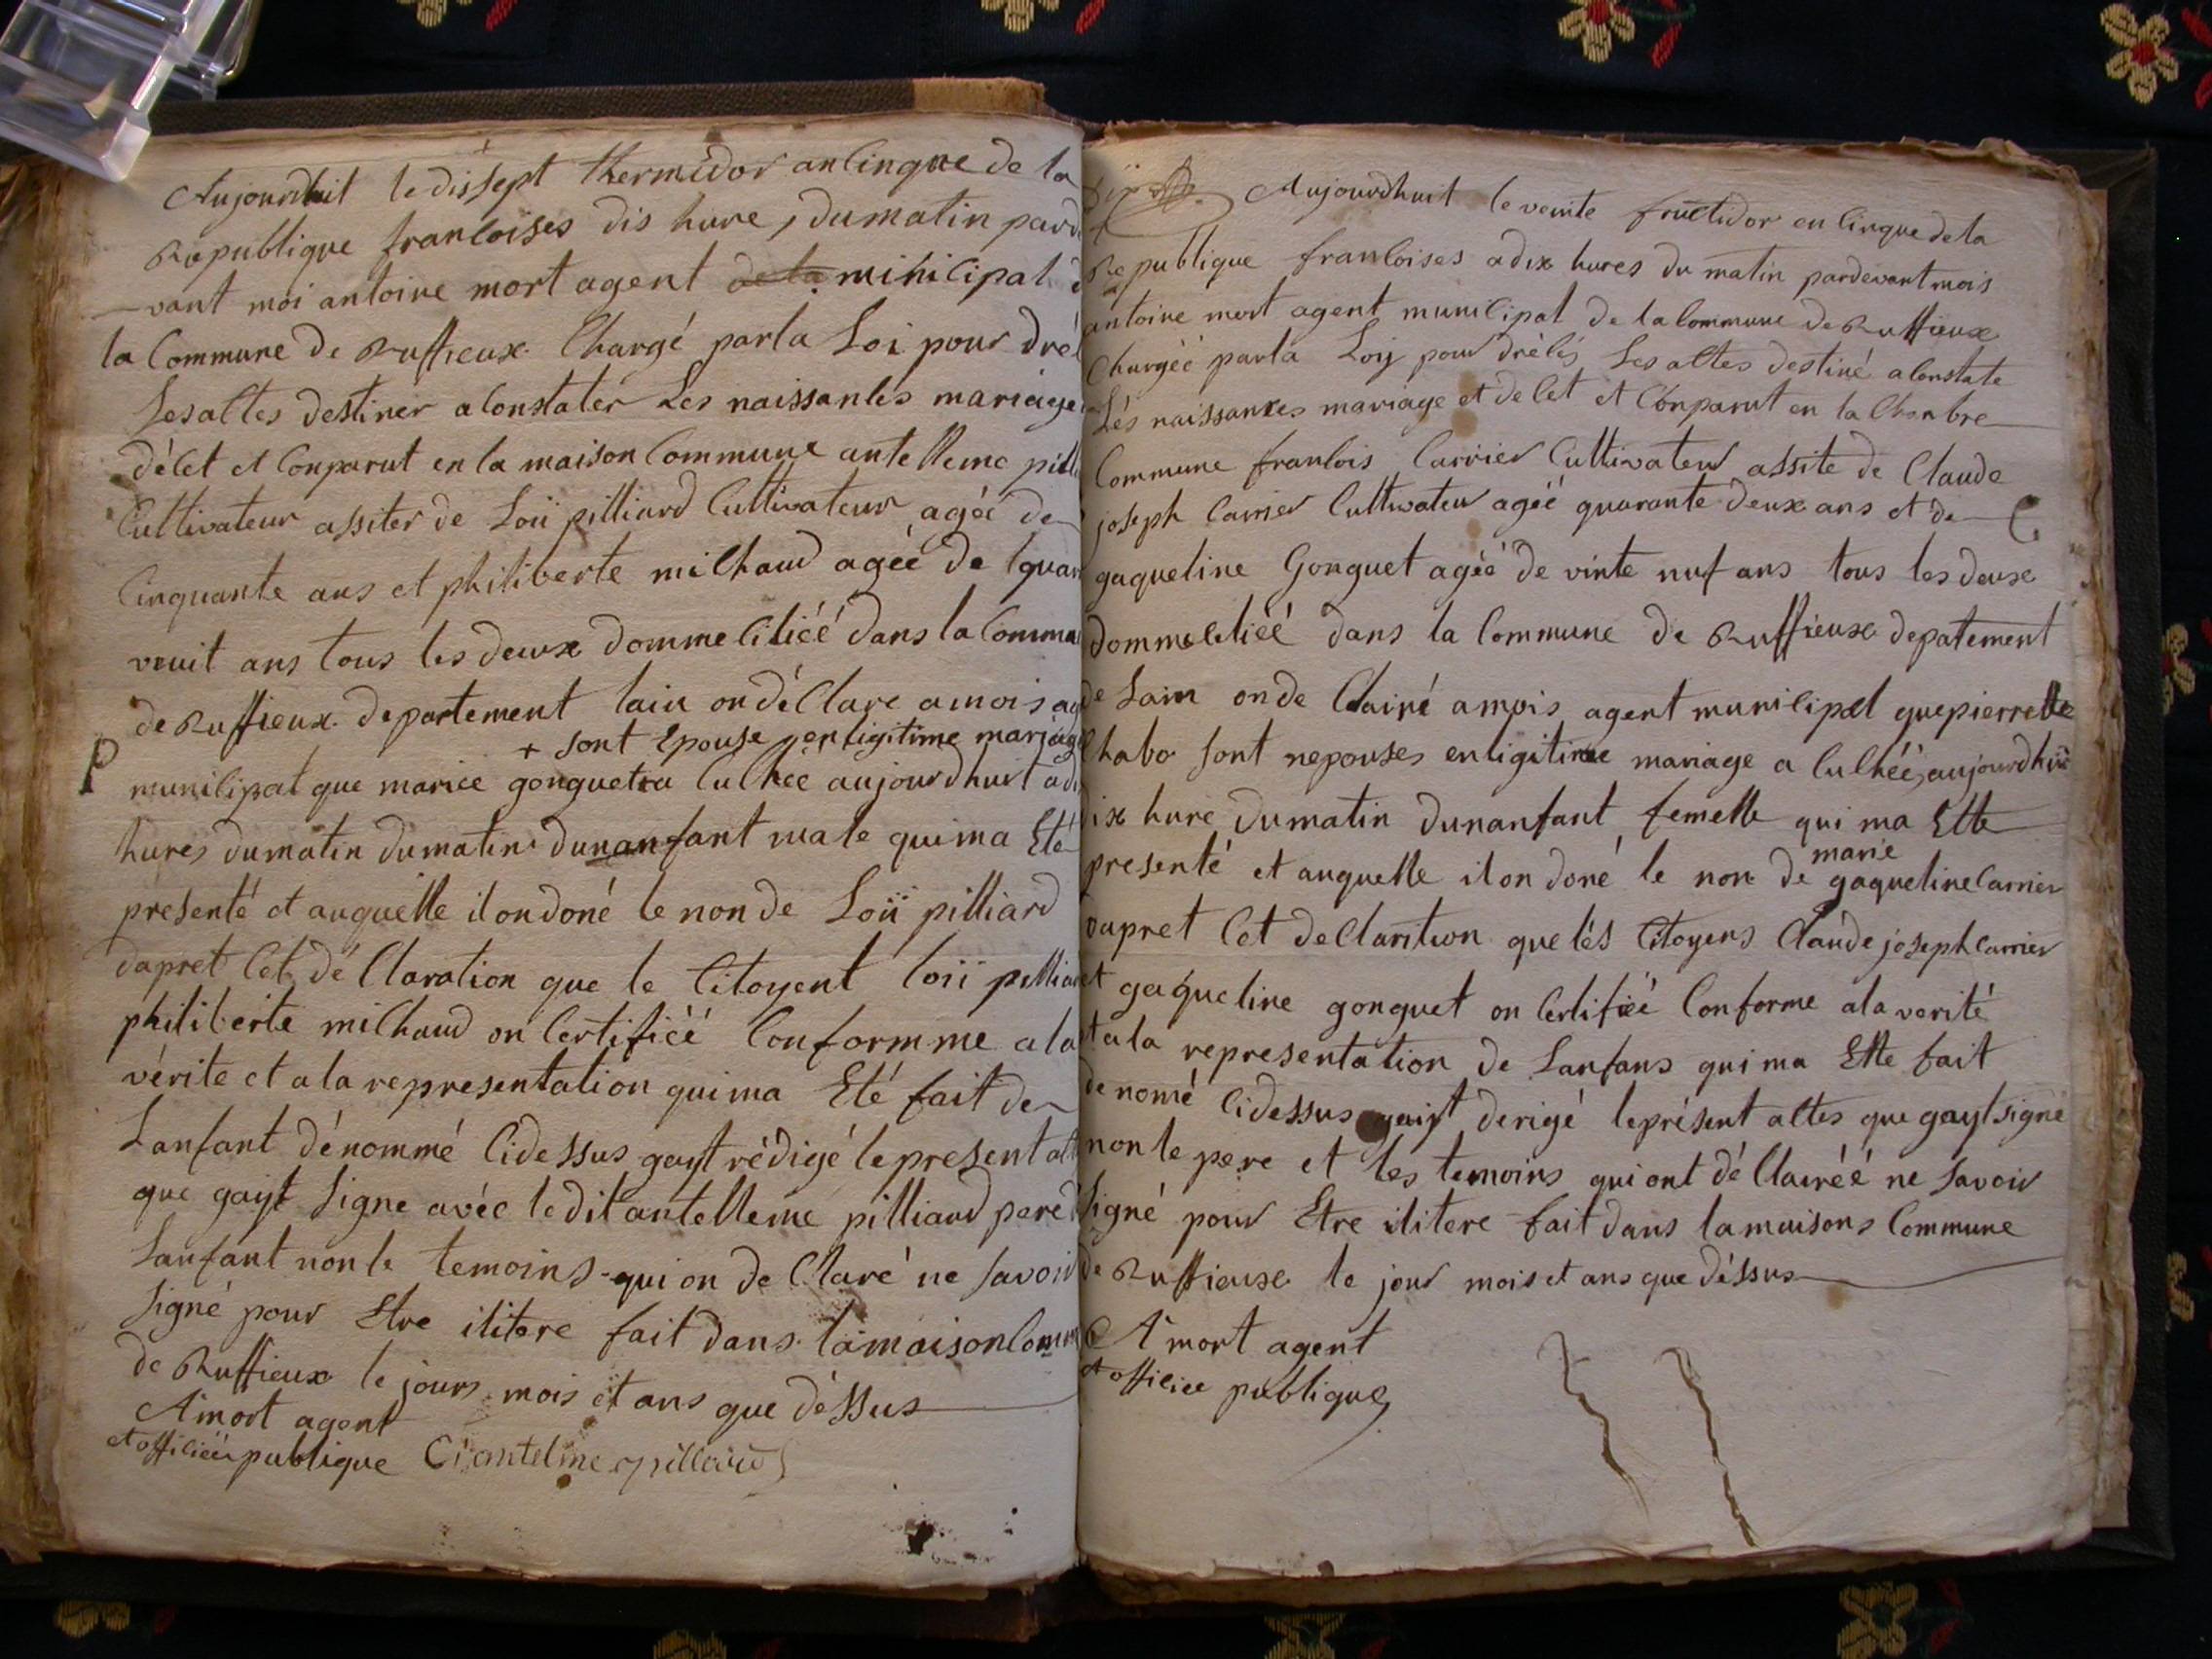 Aujourdhuit le dissept thermidor an cinque de la
Republique francoises dis hure, du matin parde
vant moi antoine mort agent de la minicipal d
la commune de Ruffieux chargé par la Loi pour dré
Les actes destiner a constater Les naissances mariage
décet et Conparut en la maison commune antelleme pilli
Cultivateur assiter de Loii pilliard Cultivateur agéé de
Cinquante ans et philiberte milhaud agéé de
veuit ans tous les deux dommeciliéé dans la Commu
de Ruffieux departement lain on déClare a mois ag
+ sont Epouse en ligitime mariage
P municipal que mariee gonguet a cuchée aujourdhuit a di
hures du matin du matin dun anfant male qui ma Eté
presenté et auquelle il on doné le non de Loii pilliard
dapret Cet déClaration que le Citoyent loii pilliar
philiberte milhaud on Certifiéé Conformme a la
vérite et a la representation qui ma Eté fait de
Lanfant dénommé Cidessus gayt rédigé le present act
que gayt Signe avéc le dit antelleme pilliard pere d
Lanfant non le temoins qui on de Claré ne savoir
Signé pour Etre ilitere fait dans la maison Comm
de Ruffieux le jours mois et ans que déssus
A mort agent
et officiéer publique Ci antelme pilliard
Aujourdhuit le veinte fructidor en Cinque de la
Republique francoises a dix hures du matin pardevant mois
antoine mort agent municipal de la Commune de Ruffieux
Chargéé par la Loy pour drécés Les actes destiné a constate
Lés naissances mariage et decet et Conparut en la Chanbre
Commune francois Carrier Cultivateur assite de Claude
joseph Carrier Cultivateur agéé quarante deux ans et de
gaqueline Gonguet agéé de vinte nuf ans tous les deux
dommeceliéé dans la Commune de Ruffieux depatement
de Lain on de Clairé a mois agent municipal que pierrette
Chabo sont nepouses en ligitime mariage a Cuchéé aujourdhui
dix hure du matin dun anfant femelle qui ma Ette
marie
presenté et auquelle il on doné le non de gaqueline Carrier
dapret Cet de Claration que lés Citoyens Claude joseph Carrier
et gaqueline gonguet on Certifiéé Conforme a la verité
et a la representation de Lanfans qui ma Ette fait
de nomé Cidessus gayt derigé le présent actes que gayt signé
non le pere et les temoins qui ont dé Clairéé ne savoir
Signé pour Etre ilitere fait dans la maisons Commune
de Ruffieux le jour mois et ans que déssus
A mort agent
et officiee publique